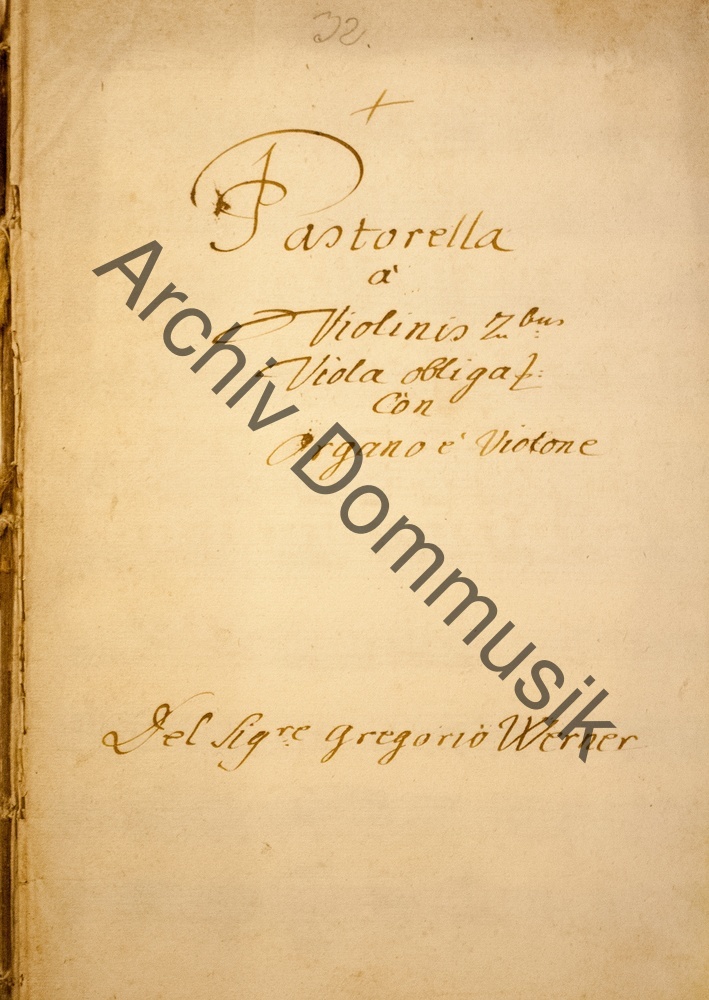 32.
Pastorella
à
Violinis 2bus
Viola obligat:
Con
Organo è Violone
Del Sigre Gregorio Werner
Archiv Dommusik